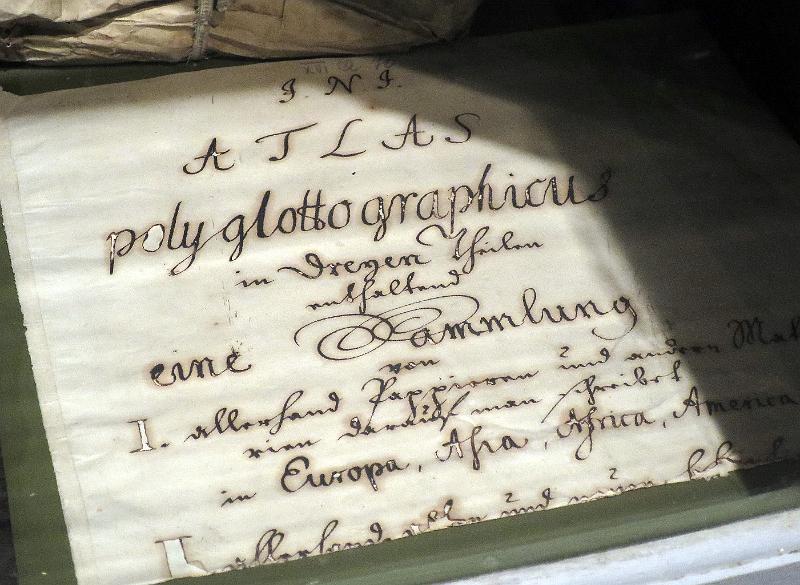 I. N. I.
ATLAS
polyglottographicus
in dreyen Theilen
enthaltend
eine Sammlung
von
I. allerhand Pappieren und andern Mate
rien darauf man schreibet
in Europa, Asia, Africa, America
allerhand alte und neuen